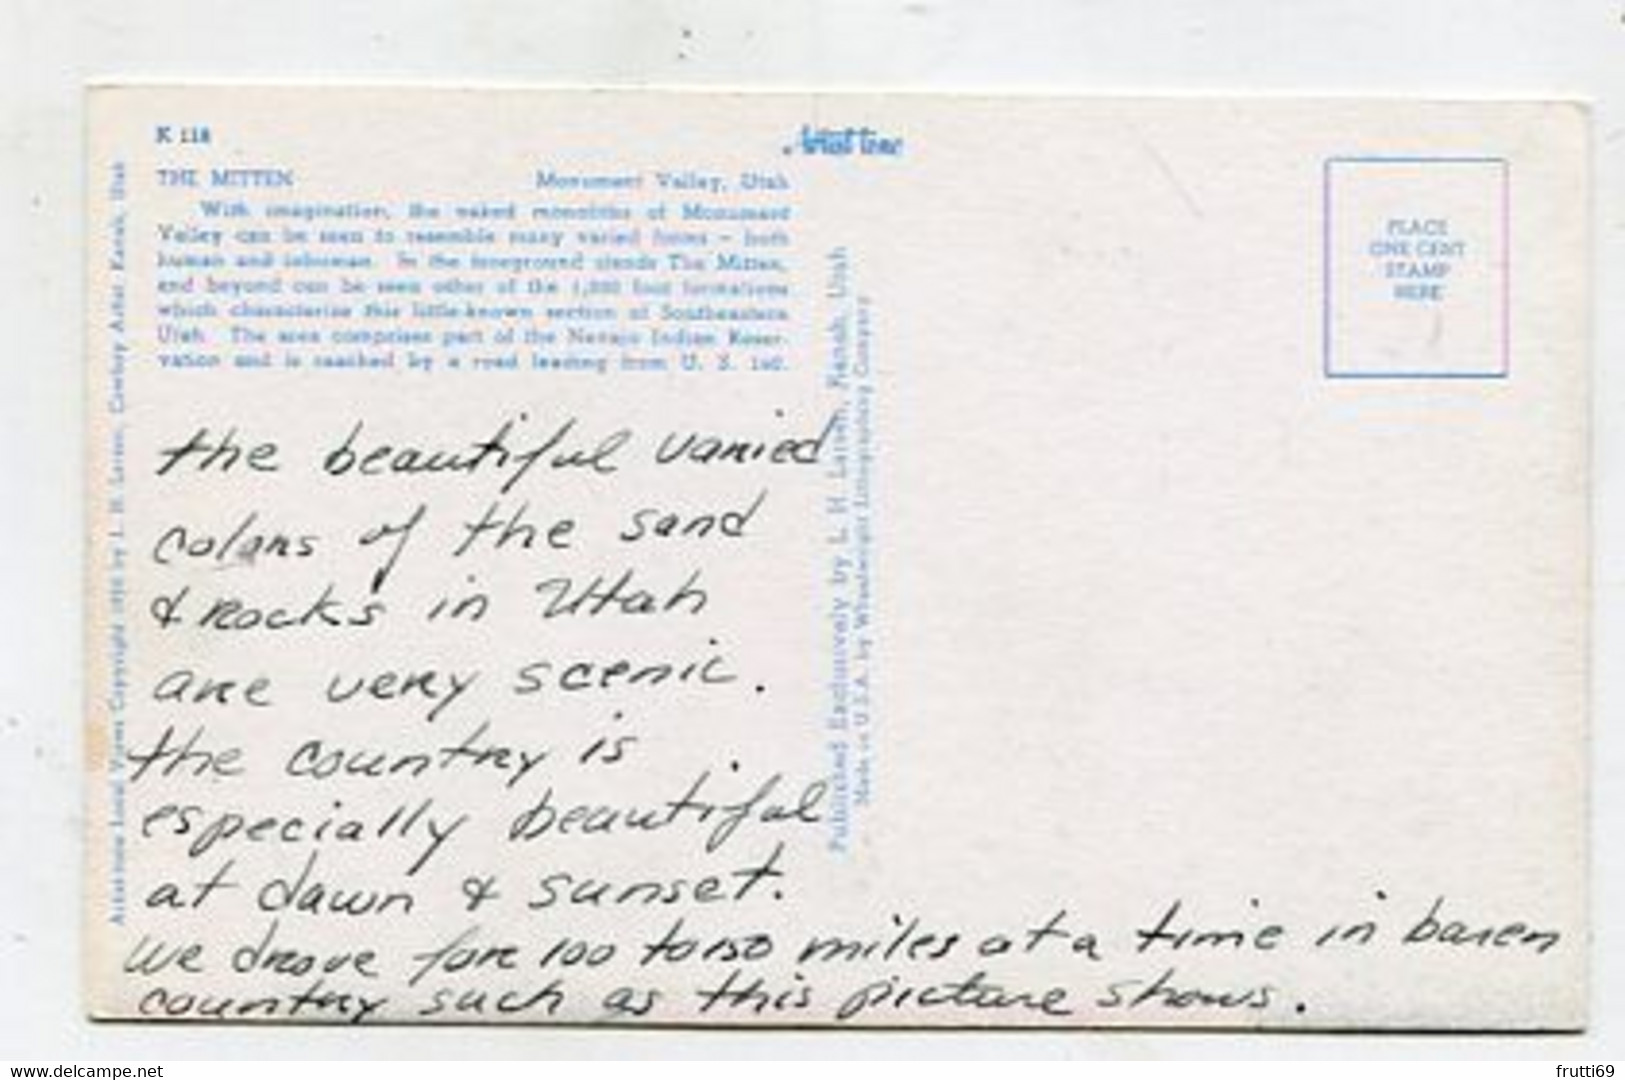 K 118
THE MITTEN Monument Valley, Utah
With imagination, the naked monoliths of Monument
Valley can be seen to resemble many varied forms – both
human and inhuman. In the foreground stands The Mitten,
and beyond can be seen other of the 1,000 foot formations
which characterize this little-known section of Southeastern
Utah. The area comprises part of the Navajo Indian Reser-
vation and is reached by a road leading from U. S. 160.
the beautiful varied
colors of the sand
& rocks in Utah
are very scenic.
the country is
especially beautiful
at dawn & sunset.
we drove for 100 to 150 miles at a time in baren
country such as this picture shows.
Local Views Copyright by L. H. Larson, Cowboy Artist Kanab, Utah
Published Exclusively by L. H. Larson, Kanab, Utah
Made in U.S.A. by Wheelwright Lithographing Company
PLACE
ONE CENT
STAMP
HERE
delcampe.net
frutti69